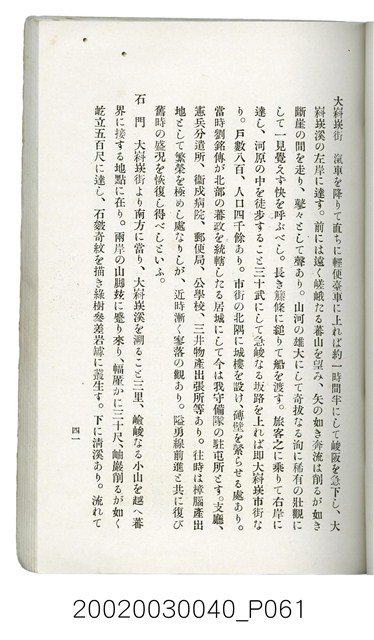 大嵙崁街　滊車を降りて直ちに輕便臺車に上れば約一時間半にして峻阪を急下し、大
嵙崁溪の左岸に達す。前には遠く嵯峨たる蕃山を望み、矢の如き奔流は削るが如き
斷崖の間を走り、鼕々として聲あり。山河の雄大にして奇拔なる洵に稀有の壯觀に
して一見覺えず快を呼ぶべし。長き籐條に縋りて船を渡す。旅客之に乘りて右岸に
達し、河原の中を徒歩すること三十武にして急峻なる坂路を上れば即大嵙崁市街な
り。戶數八百、人口四千餘あり。市街の北隅に城樓を設け磚壁を繞らせる處あり。
當時劉銘傳が北部の蕃政を統轄したる居城にして今は我守備隊の駐屯所とす。支廳、
憲兵分遣所、衞戍病院、郵便局、公學校、三井物產出張所等あり。往時は樟腦產出
地として繁榮を極めし處なりしが、近時漸く寥落の觀あり。隘勇線前進と共に復び
舊時の盛况を恢復し得べしといふ。
石門　大嵙崁街より南方に當り、大嵙崁溪を溯ること三里、嶮峻なる小山を越へ蕃
界に接する地點に在り。兩岸の山脚玆に蹙り來り、幅厪かに三十尺、岫巖削るが如く
屹立五百尺に達し、石皴奇紋を描き綠樹參差岩罅に叢生す。下に清溪あり。流れて
四一
20020030040_P061